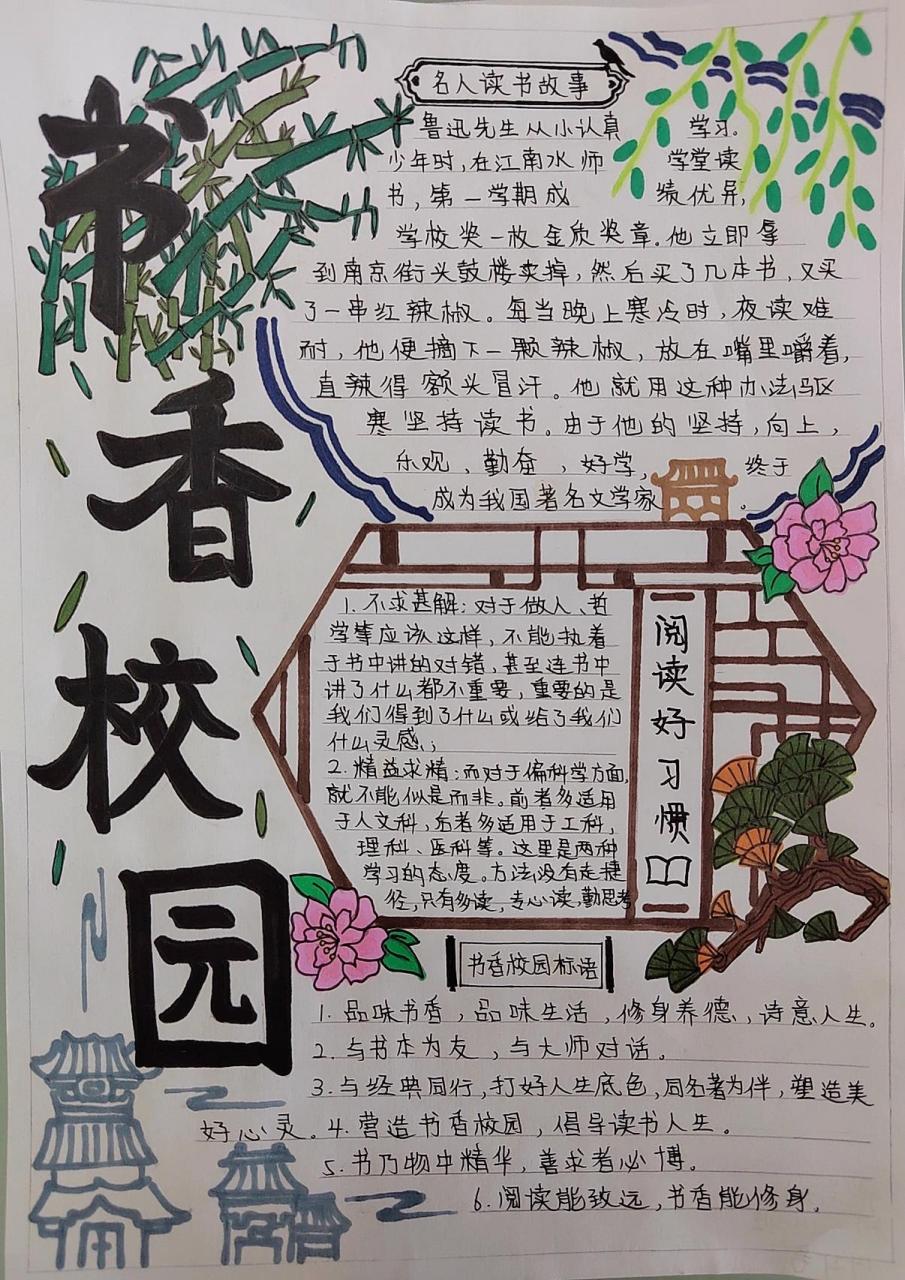 书香校园
名人读书故事
鲁迅先生从小认真 学习。
少年时,在江南水师 学堂读
书,第一学期成 绩优异,
学校奖一枚金质奖章。他立即拿
到南京街头鼓楼卖掉,然后买了几本书,又买
了一串红辣椒。每当晚上寒冷时,夜读难
耐,他便摘下一颗辣椒,放在嘴里嚼着,
直辣得额头冒汗。他就用这种办法驱
寒坚持读书。由于他的坚持,向上,
乐观、勤奋,好学, 终于
成为我国著名文学家 。
1.不求甚解:对于做人、哲
学等应该这样,不能执着
于书中讲的对错,甚至连书中
讲了什么都不重要,重要的是
我们得到了什么或给了我们
什么灵感;
2.精益求精:而对于偏科学方面,
就不能似是而非。前者多适用
于人文科,后者多适用于工科,
理科、医科等。这里是两种
学习的态度。方法没有走捷
径,只有多读,专心读,勤思考
阅读好习惯
书香校园标语
1.品味书香,品味生活,修身养德,诗意人生。
2.与书本为友,与大师对话。
3.与经典同行,打好人生底色,同名著为伴,塑造美
好心灵。4.营造书香校园,倡导读书人生。
5.书乃物中精华,善求者必博。
6.阅读能致远,书香能修身。